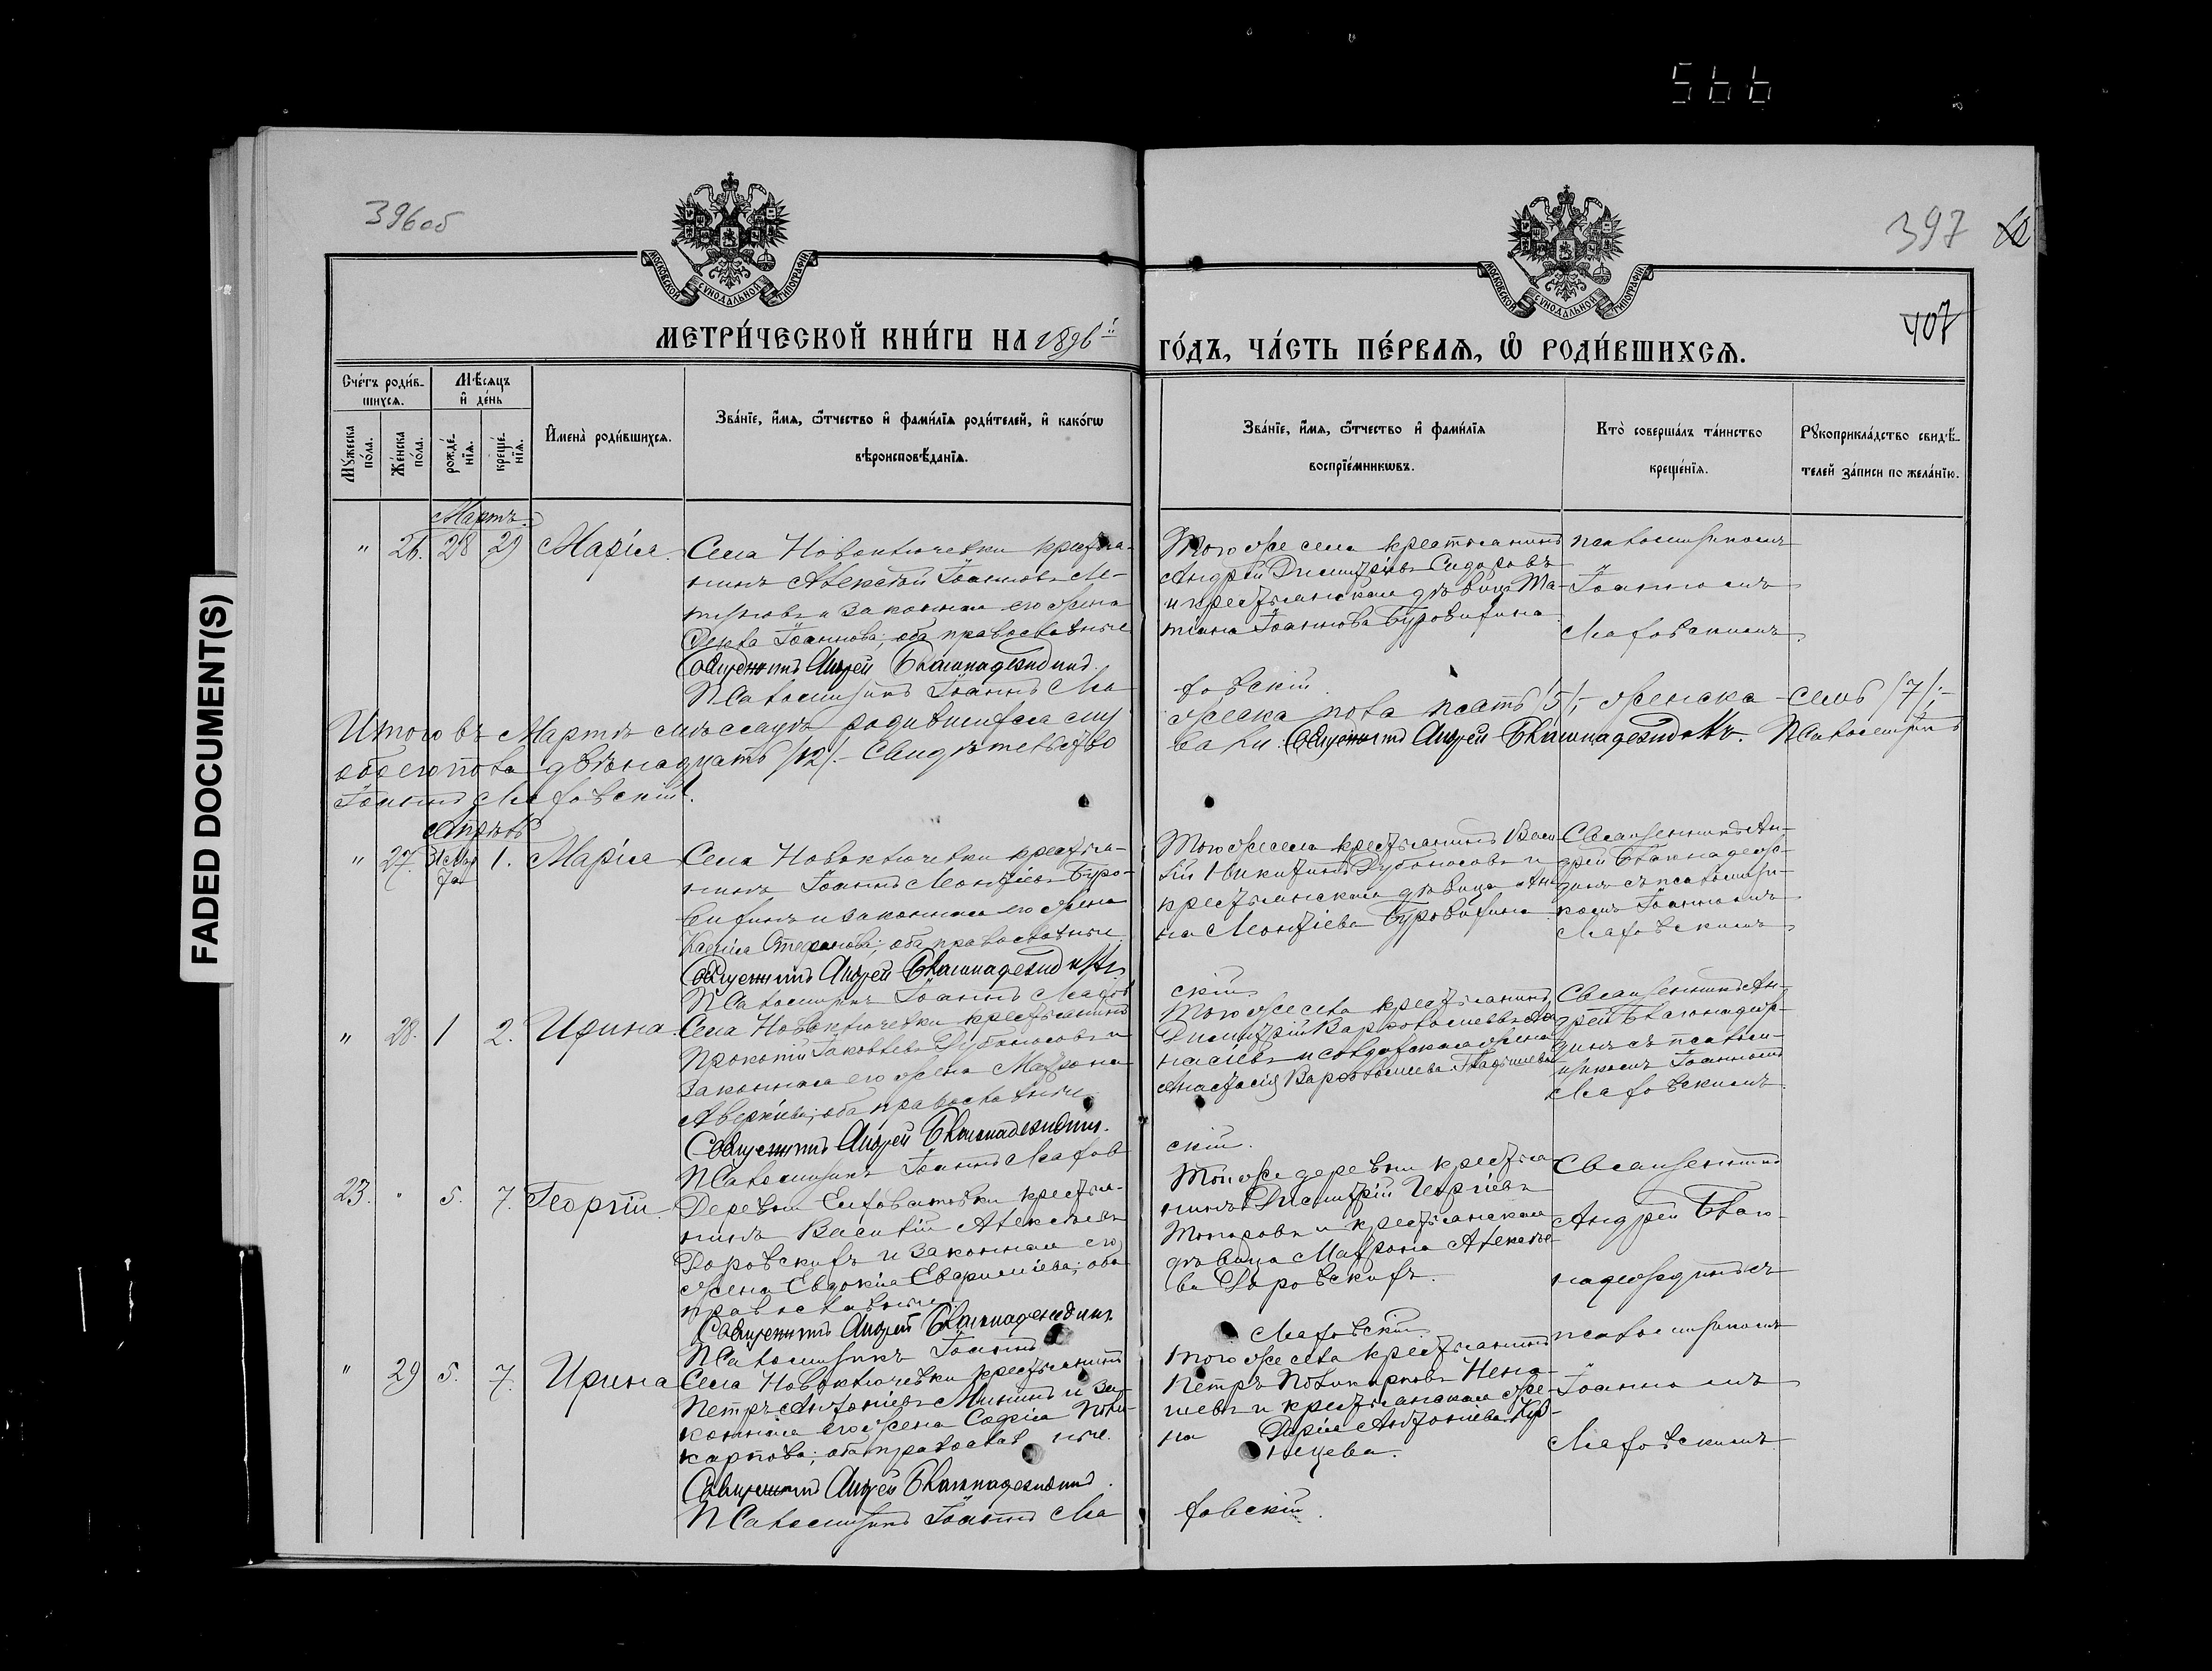 566
396об
397
407
FADED DOCUMENT(S)
МОСКОВСКОЙ СѴНОДАЛЬНОЙ ТИПОГРАФІИ
МОСКОВСКОЙ СѴНОДАЛЬНОЙ ТИПОГРАФІИ
МЕТРИ́ЧЕСКОЙ КНИ́ГИ НА 1896й
ГО́ДЪ, ЧА́СТЬ ПЕ́РВАѦ, Ѽ РОДИ́ВШИХСѦ.
Сче́тъ роди́в-
шихсѧ.
Мѹ́жеска по́ла.
Же́нска по́ла.
Мѣ́сѧцъ
и҆ де́нь
рожде́-
нїѧ.
креще́-
нїѧ.
И҆мена̀ роди́вшихсѧ.
Зва́нїе, и҆́мѧ, ѻ҆́тчество и҆ фами́лїѧ роди́телей, и҆ како́гѡ
вѣроисповѣ́данїѧ.
Зва́нїе, и҆́мѧ, ѻ҆́тчество и҆ фами́лїѧ
воспрїе́мникѡвъ.
Кто̀ соверша́лъ та́инство
креще́нїѧ.
Рѹкоприкла́дство свидѣ́-
телей за́писи по жела́нїю.
Мартъ
" 26. 28 29 Марія.
Села Новоключевки крестья-
нинъ Алексѣй Іоанновъ
и законная его жена
Іоаннова; оба православные
Священникъ Андрей Благонадеждинъ.
Псаломщикъ Іоаннъ Ма
Того же села крестьянинъ
Андрей Димитріевъ Сидоровъ
и крестьянская дѣвица Та-
тіана Іоаннова Буровихина
ловскій.
псаломщикомъ
Іоанномъ
Маловскимъ
Итого въ Мартѣ мѣсяцѣ родившихся муж
жеска пола пять /5/, женска - семь /7/;
обоего пола двѣнадцать /12/. - Свидѣтельство
вали: Священникъ Андрей Благонадеждинъ. Псаломщикъ
Іоаннъ Маловскій.
Апрѣль
" 27. 31 Мар та 1. Марія
Села Новоключевки крестья-
нинъ Іоаннъ Леонтіевъ Буро-
вихинъ и законная его жена
Стефанова; оба православные
Священникъ Андрей Благонадеждинъ
Псаломщикъ Іоаннъ Малов
Того же села крестьянинъ Васи-
лій Никитинъ Дубоносовъ и
крестьянская дѣвица Ан-
на Леонтіева Буровихина
скій
Священникъ Ан-
дрей Благонадеж-
динъ съ псаломщи-
комъ Іоанномъ
Маловскимъ
" 28. 1 2. Ирина.
Села Новоключевки крестьянинъ
Прокопій Іаковлевъ Дубоносовъ и
законная его жена Матрона
Аверкіева; оба православные
Священникъ Андрей Благонадеждинъ.
Псаломщикъ Іоаннъ Малов
Того же села крестьянинъ
Димитрій Варфоломеевъ Афа-
насіевъ и солдатская жена
Анастасія Варфоломеева
скій.
Священникъ Ан-
дрей Благонадеж-
динъ съ псалом-
щикомъ Іоанномъ
Маловскимъ
23. " 5. 7. Георгій.
Деревни крестья-
нинъ Василій Алексѣевъ
Боровскихъ и законная его
жена Евдокія; оба
православные.
Священникъ Андрей Благонадеждинъ
Псаломщикъ Іоаннъ
Той же деревни крестья-
нинъ Димитрій Георгіевъ
Топоровъ и крестьянская
дѣвица Матрона Алексѣе-
ва Боровскихъ.
Маловскій
Священникъ
Андрей Благо-
надеждинъ съ
псаломщикомъ
Іоанномъ
Маловскимъ
" 29 5. 7. Ирина
Села Новоключевки крестьянинъ
Петръ Антоніевъ Мининъ и за-
конная его жена Софія Поли-
карпова; оба православ ные.
Священникъ Андрей Благонадеждинъ.
Псаломщикъ Іоаннъ Ма
Того же села крестьянинъ
Петръ Поликарповъ Нена-
шевъ и крестьянская же-
на Дарія Антоніева Куз-
нецева.
ловскій.